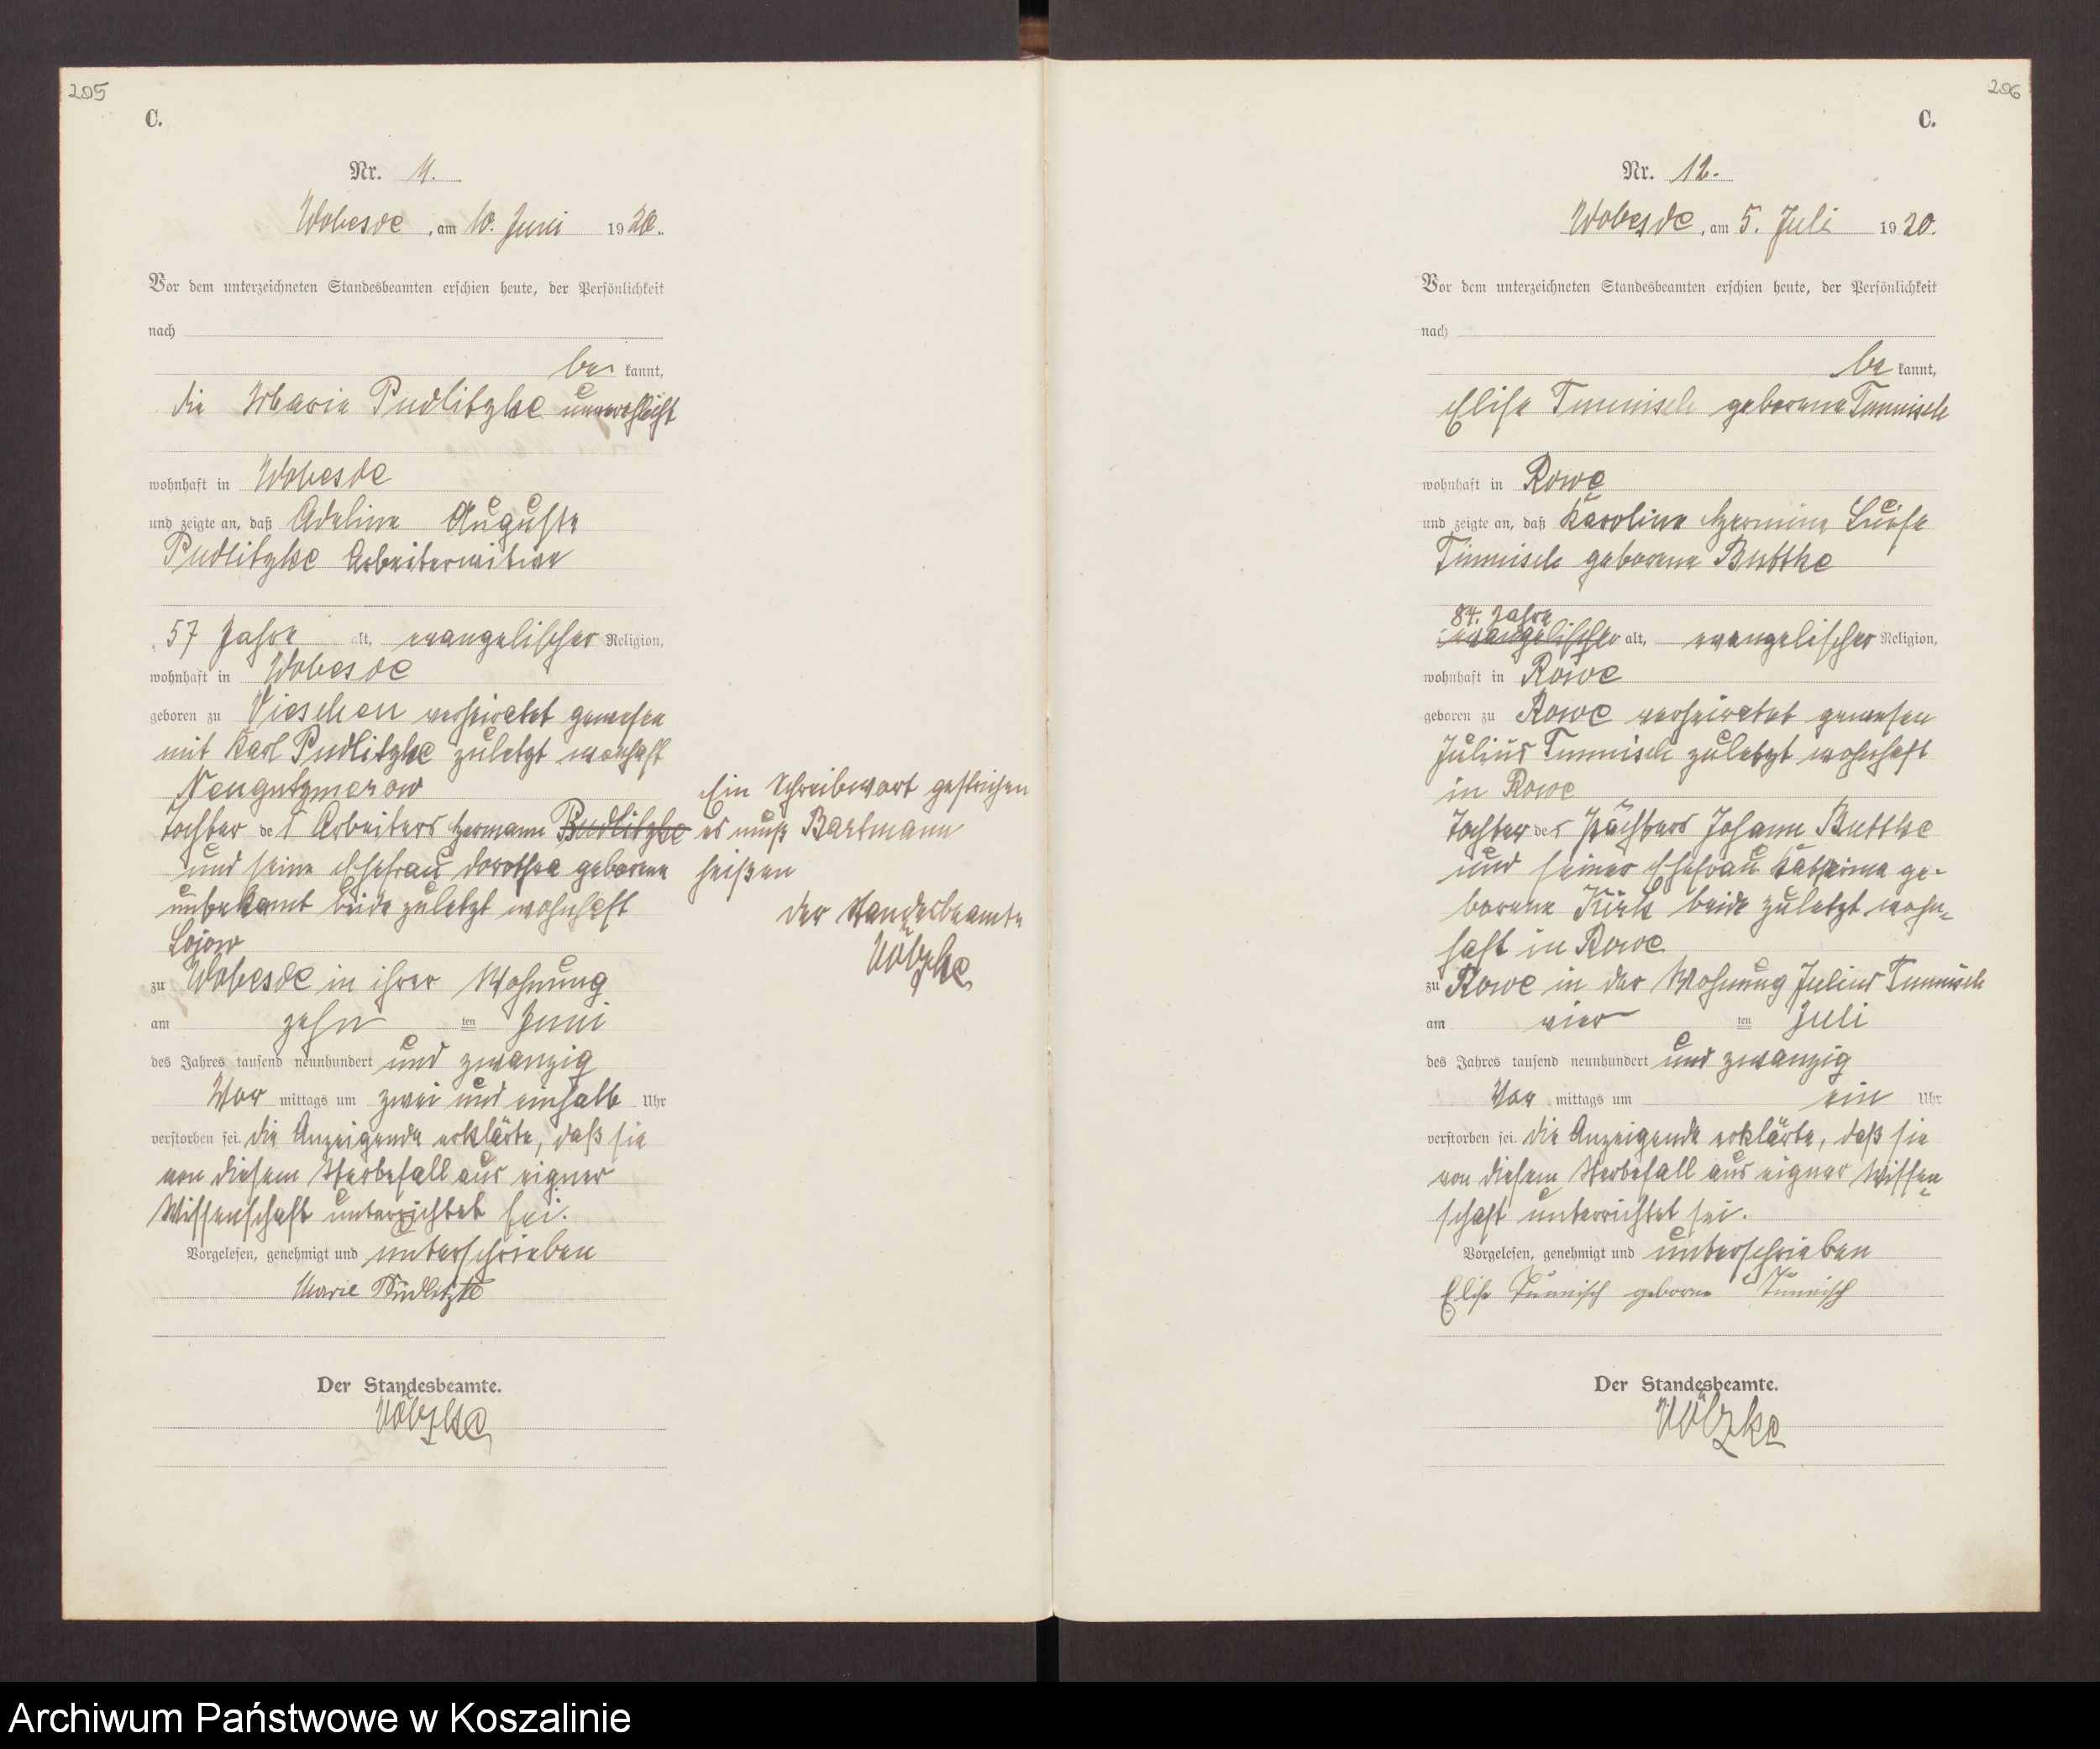 205
C.
Nr. 11.
Wobesde, am 10. Juni 1920.
Vor dem unterzeichneten Standesbeamten erschien heute, der Persönlichkeit
nach
be kannt,
die Marie Pudlitzke unverehelicht
wohnhaft in Wobesde
und zeigte an, daß Adeline Auguste
Pudlitzke Arbeiterwitwe
57 Jahre alt, evangelischer Religion,
wohnhaft in Wobesde
geboren zu Vieschen verheiratet gewesen
mit Karl Pudlitzke zuletzt wohnhaft
Neugutzmerow
Tochter des Arbeiters Hermann Pudlitzke
und seine Ehefrau Dorothee geborene
unbekannt beide zuletzt wohnhaft
Lojow
zu Wobesde in ihrer Wohnung
am zehn ten Juni
des Jahres tausend neunhundert und zwanzig
Vor mittags um zwei und einhalb Uhr
verstorben sei. die Anzeigende erklärte, daß sie
von diesem Sterbefall aus eigner
Wissenschaft unterrichtet sei.
Vorgelesen, genehmigt und unterschrieben
Marie Pudlitzke
Der Standesbeamte.
Völzke
Ein Schreibwort gestrichen
es muß Bartmann
heißen
der Standesbeamte
Völzke
206
C.
Nr. 12.
Wobesde, am 5. Juli 1920.
Vor dem unterzeichneten Standesbeamten erschien heute, der Persönlichkeit
nach
be kannt,
Elise Tummisch geborene Tummisch
wohnhaft in Rowe
und zeigte an, daß Karoline Hermine Luise
Timmisch geborene Buttke
84. Jahre
evangelischer alt, evangelischer Religion,
wohnhaft in Rowe
geboren zu Rowe verheiratet gewesen
Julius Tummisch zuletzt wohnhaft
in Rowe
Tochter des Pächters Johann Buttke
und seiner Ehefrau Katherina ge-
borene Kirk beide zuletzt wohn-
haft in Rowe
zu Rowe in der Wohnung Julius Tummisch
am vier ten Juli
des Jahres tausend neunhundert und zwanzig
Vor mittags um ein Uhr
verstorben sei. die Anzeigende erklärte, daß sie
von diesem Sterbefall aus eigner Wissen-
schaft unterrichtet sei.
Vorgelesen, genehmigt und unterschrieben
Elise Tummisch geborne Tummisch
Der Standesbeamte.
Völzke
Archiwum Państwowe w Koszalinie